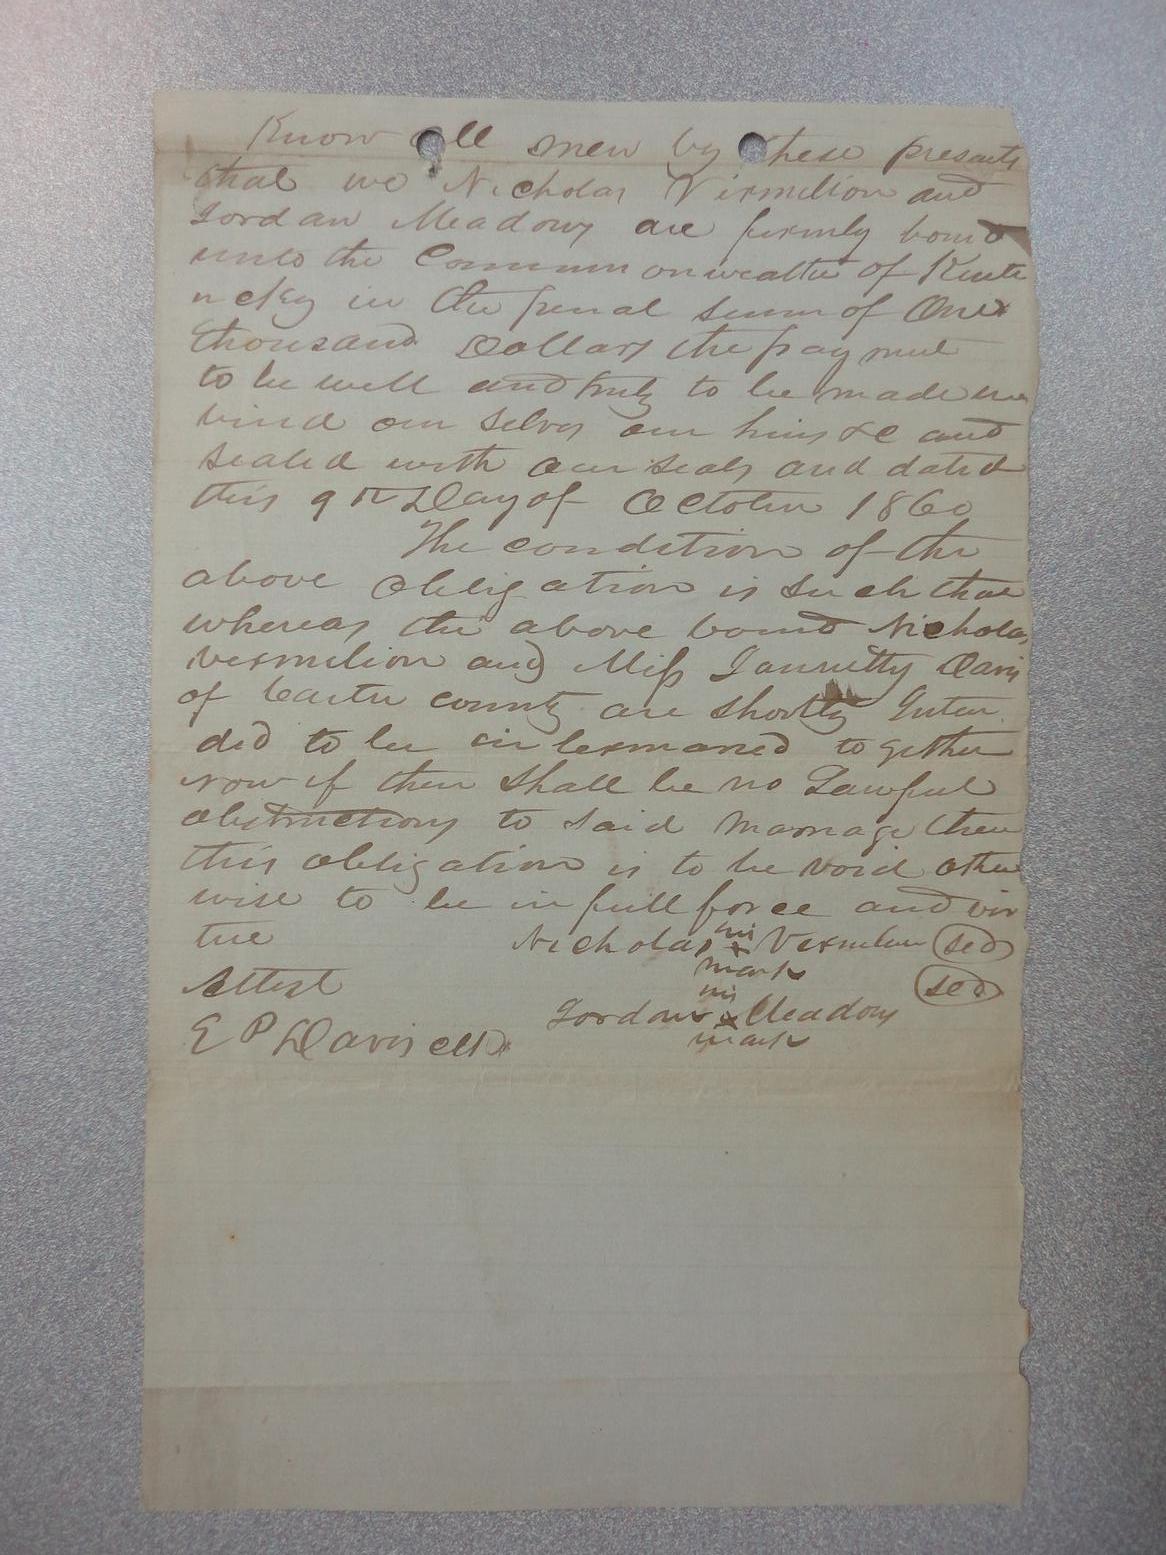 Know all men by these presents
that we Nicholas Vermilion and
Jordan Meadows are firmly bound
unto the Commonwealth of Kentu
ucky in the penal sum of One
thousand Dollars the payment
to be well and truly to be made we
bind our selves our heirs &c and
sealed with our seals and dated
this 9th Day of October 1860
The condition of the
above obligation is such that
whereas the above bound Nicholas
Vermilion and Miss Davis
of Carter county are shortly Inten
ded to be intermarried together
now if there shall be no Lawful
obstructions to said marriage then
this obligation is to be void other
wise to be in full force and vir
tue Nicholas his x mark Vermilion
Attest
Jordan his x mark Meadows
E P Davis clk